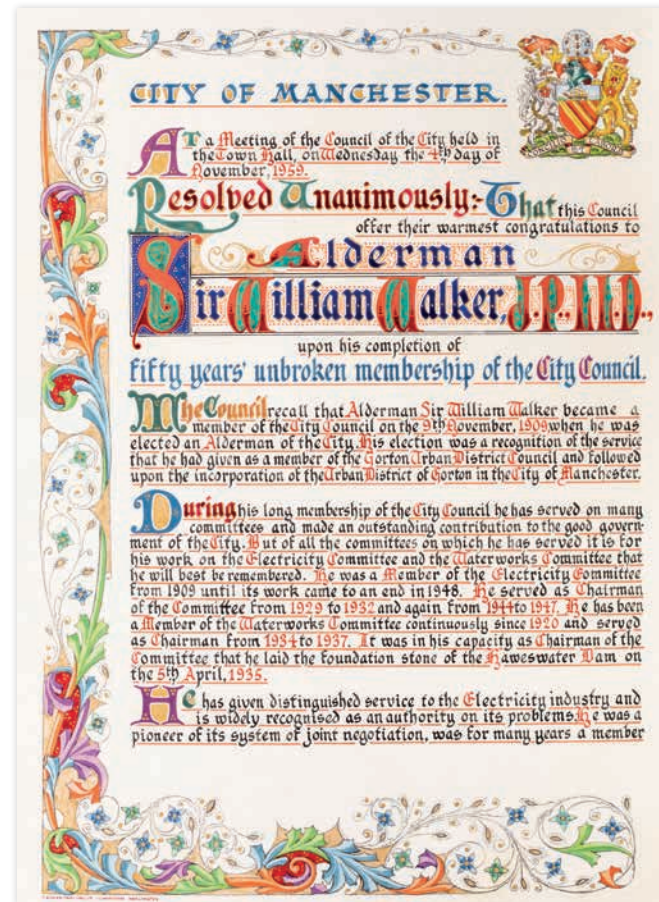 CITY OF MANCHESTER.
At a Meeting of the Council of the City held in
the Town Hall, on Wednesday the 4th day of
November, 1959.
Resolved Unanimously:- That this Council
offer their warmest congratulations to
Alderman
Sir William Walker, J.P., LL.D.,
upon his completion of
fifty years' unbroken membership of the City Council.
The Council recall that Alderman Sir William Walker became a
member of the City Council on the 9th November, 1909 when he was
elected an Alderman of the City. His election was a recognition of the service
that he had given as a member of the Gorton Urban District Council and followed
upon the incorporation of the Urban District of Gorton in the City of Manchester.
During his long membership of the City Council he has served on many
committees and made an outstanding contribution to the good govern-
ment of the City. But of all the committees on which he has served it is for
his work on the Electricity Committee and the Waterworks Committee that
he will best be remembered. He was a Member of the Electricity Committee
from 1909 until its work came to an end in 1948. He served as Chairman
of the Committee from 1929 to 1932 and again from 1944 to 1947. He has been
a Member of the Waterworks Committee continuously since 1920 and served
as Chairman from 1934 to 1937. It was in his capacity as Chairman of the
Committee that he laid the foundation stone of the Haweswater Dam on
the 5th April, 1935.
He has given distinguished service to the Electricity industry and
is widely recognised as an authority on its problems. He was a
pioneer of its system of joint negotiation, was for many years a member